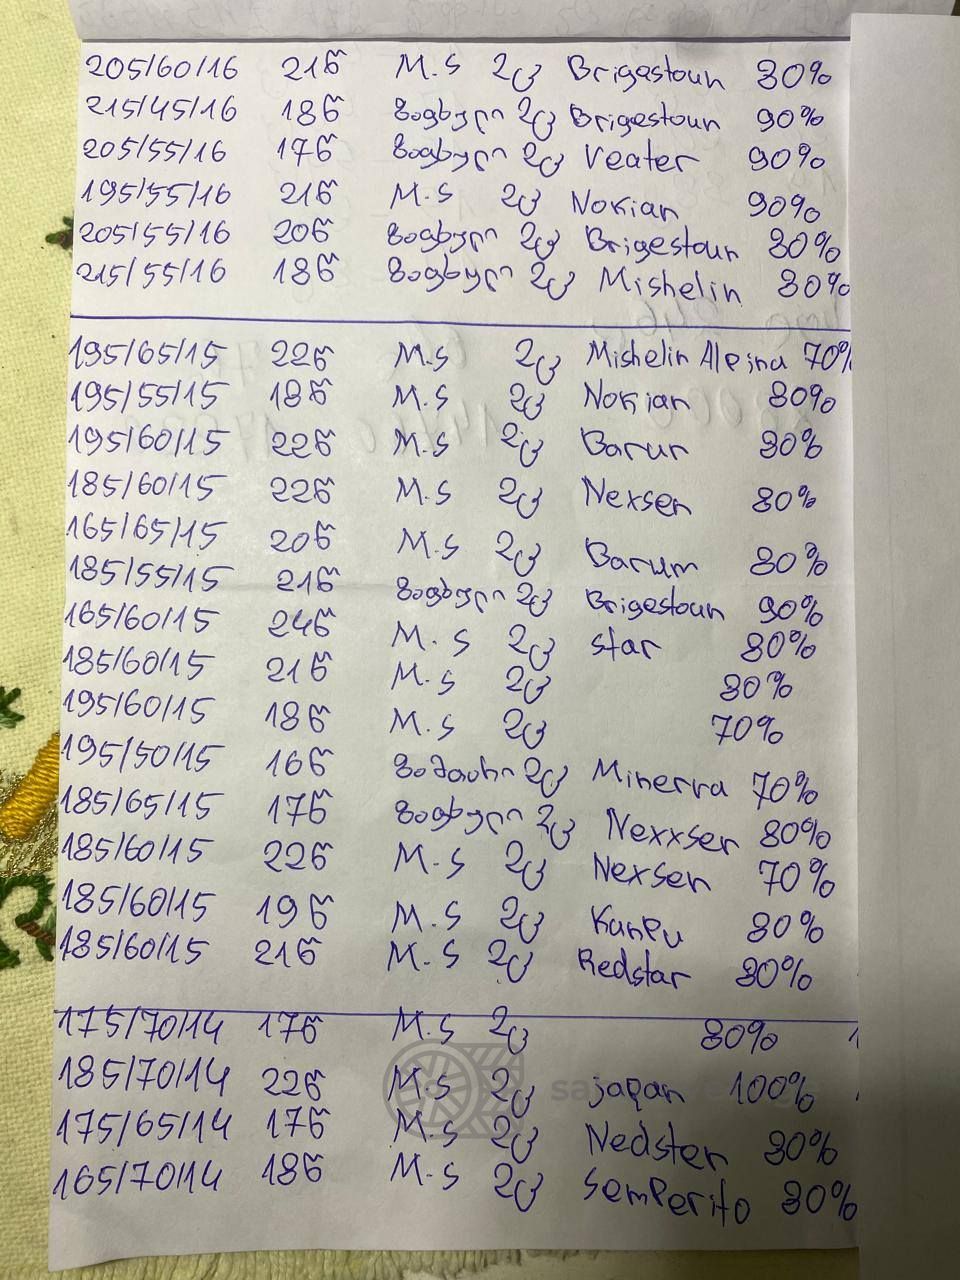 205/60/16 21წ M.S 2ც Brigestoun 80%
215/45/16 18წ ზაფხული 2ც Brigestoun 90%
205/55/16 17წ ზაფხული 2ც Veater 90%
195/55/16 21წ M.S 2ც Nokian 90%
205/55/16 20წ ზაფხული 2ც Brigestoun 80%
215/55/16 18წ ზაფხული 2ც Mishelin 80%
195/65/15 22წ M.S 2ც Mishelin Alpina 70%
195/55/15 18წ M.S 2ც Nokian 80%
195/60/15 22წ M.S 2ც Barur 80%
185/60/15 22წ M.S 2ც Nexsen 80%
165/65/15 20წ M.S 2ც Barum 80%
185/55/15 21წ ზაფხული 2ც Brigestoun 90%
165/60/15 24წ M.S 2ც Star 80%
185/60/15 21წ M.S 2ც 80%
195/60/15 18წ M.S 2ც 70%
195/50/15 16წ 2ც Minerva 70%
185/65/15 17წ ზაფხული 2ც Nexxser 80%
185/60/15 22წ M.S 2ც Nexsen 70%
185/60/15 19წ M.S 2ც Kanpu 80%
185/60/15 21წ M.S 2ც Redstar 80%
175/70/14 17წ M.S 2ც 80%
185/70/14 22წ M.S 2ც japan 100%
175/65/14 17წ M.S 2ც Nedster 80%
165/70/14 18წ M.S 2ც Semperito 80%